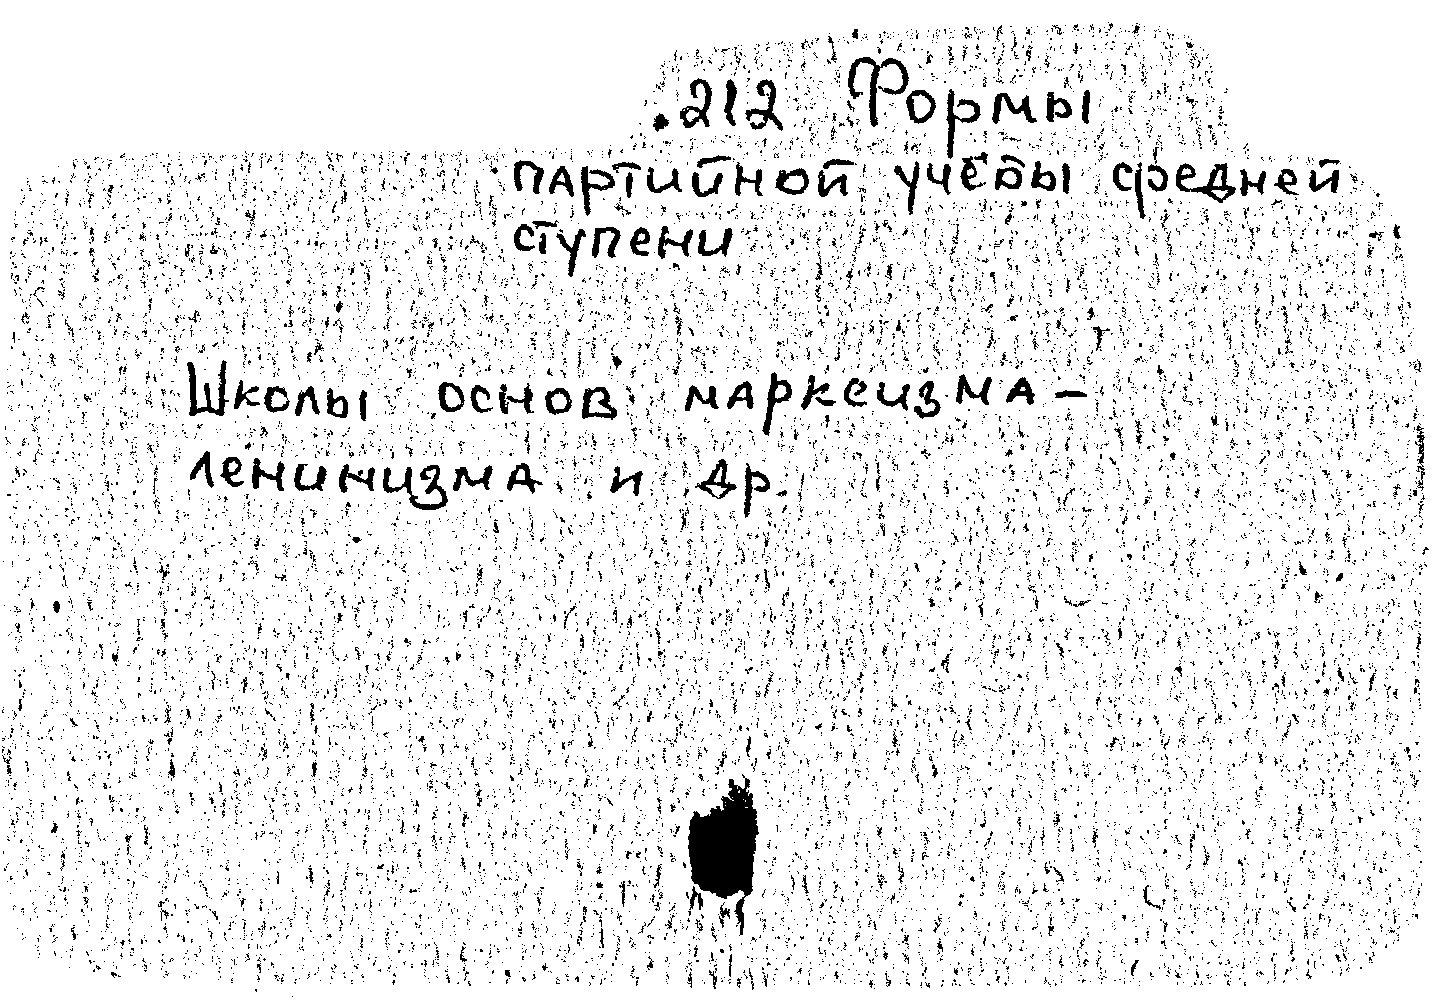 .212 Формы
партийной учёбы средней
ступени
Школы основ марксизма-
ленинизма и др.